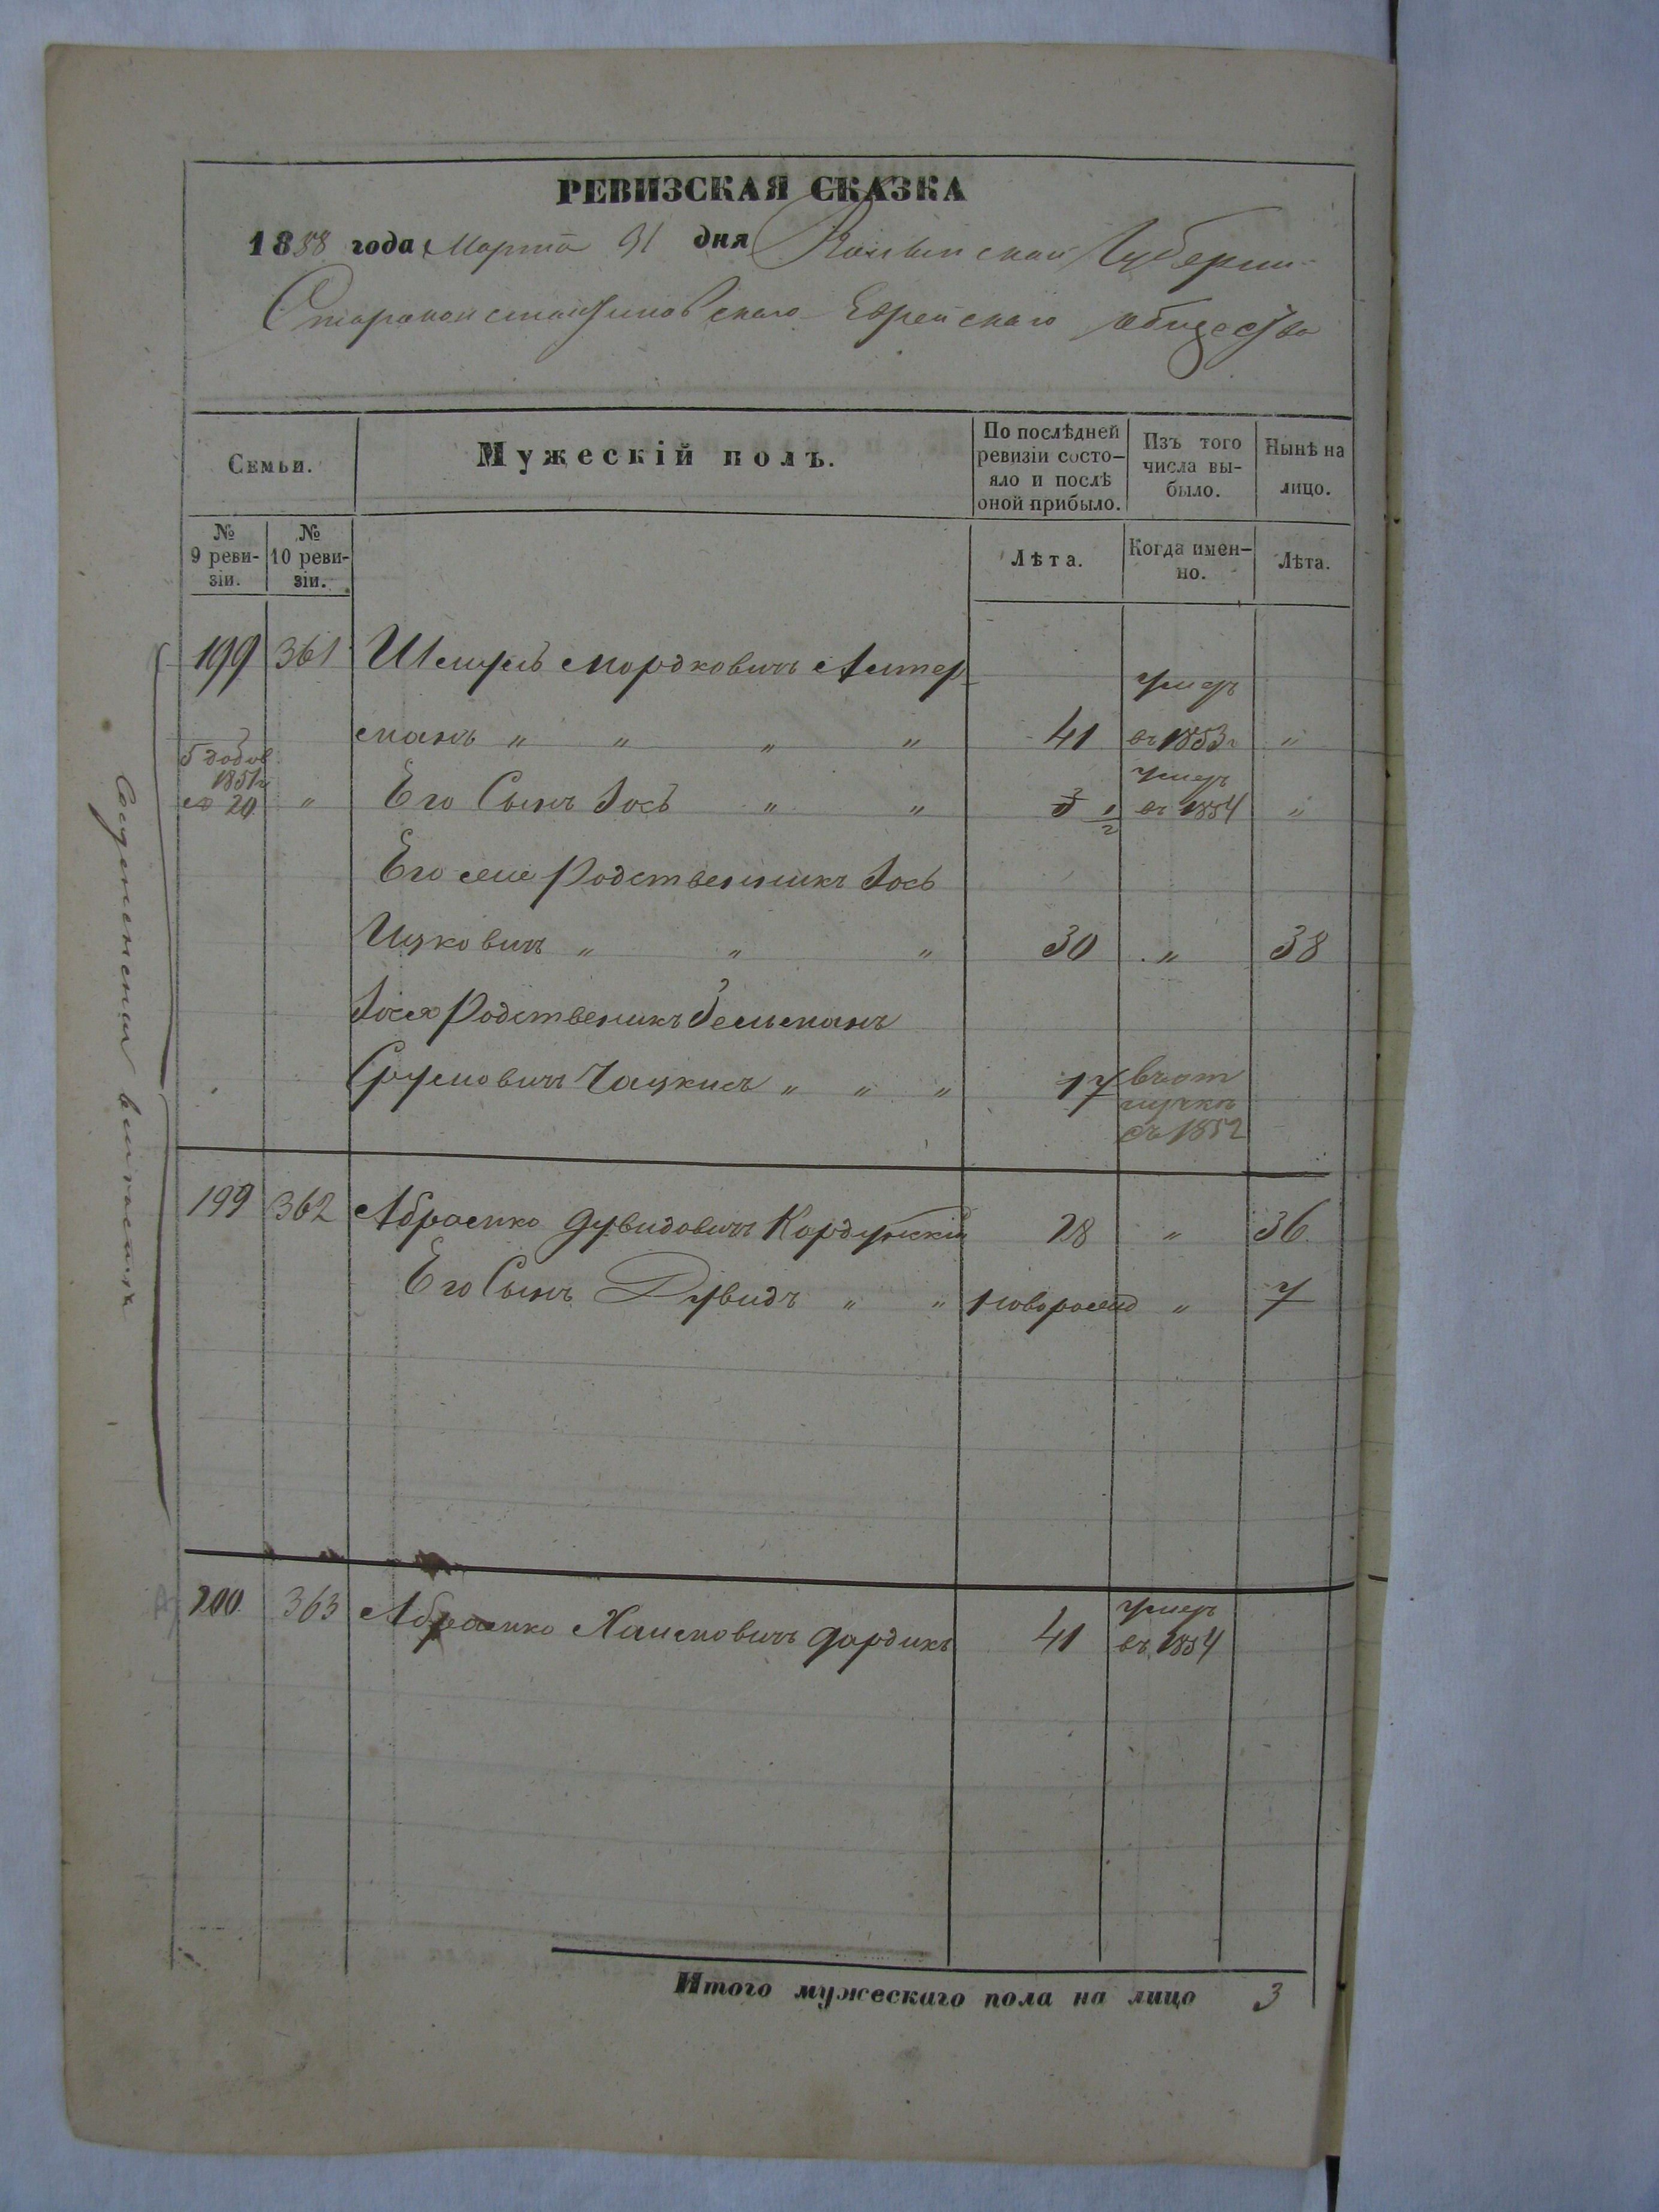 РЕВИЗСКАЯ СКАЗКА
1858 года Марта 31 дня Волынской Губерни
Староконстантиновскаго Еврейскаго общества
Семьи.
Мужескій полъ.
По послѣдней ревизіи состо-
яло и послѣ
оной прибыло.
Изъ того
числа вы-
было.
Нынѣ на
лицо.
№
9 реви-
зіи.
№
10 реви-
зіи.
Лѣта.
Когда имен-
но.
Лѣта.
199 361 Шмуль Мордковичъ Алтер
манъ " " " " 41 умеръ въ 1853г "
5 добов
1851г
20 " Его Сынъ Іось " " 1/2 умеръ въ 1854 "
Его же Родственникъ Іось
Ицковичъ " " " 30 " 38
Іося Родственикъ Зельманъ
Сруловичъ Чацкисъ " " " 17 въ от
лучкѣ
съ 1852
199 362 Абрамко Дувидовичъ Кордунскій 28 " 36
Его Сынъ Дувидъ " " новорожд " 7
200 363 Абрамко Хаимовичъ Дардикъ 41 умеръ
въ 1854
Итого мужескаго пола на лицо 3